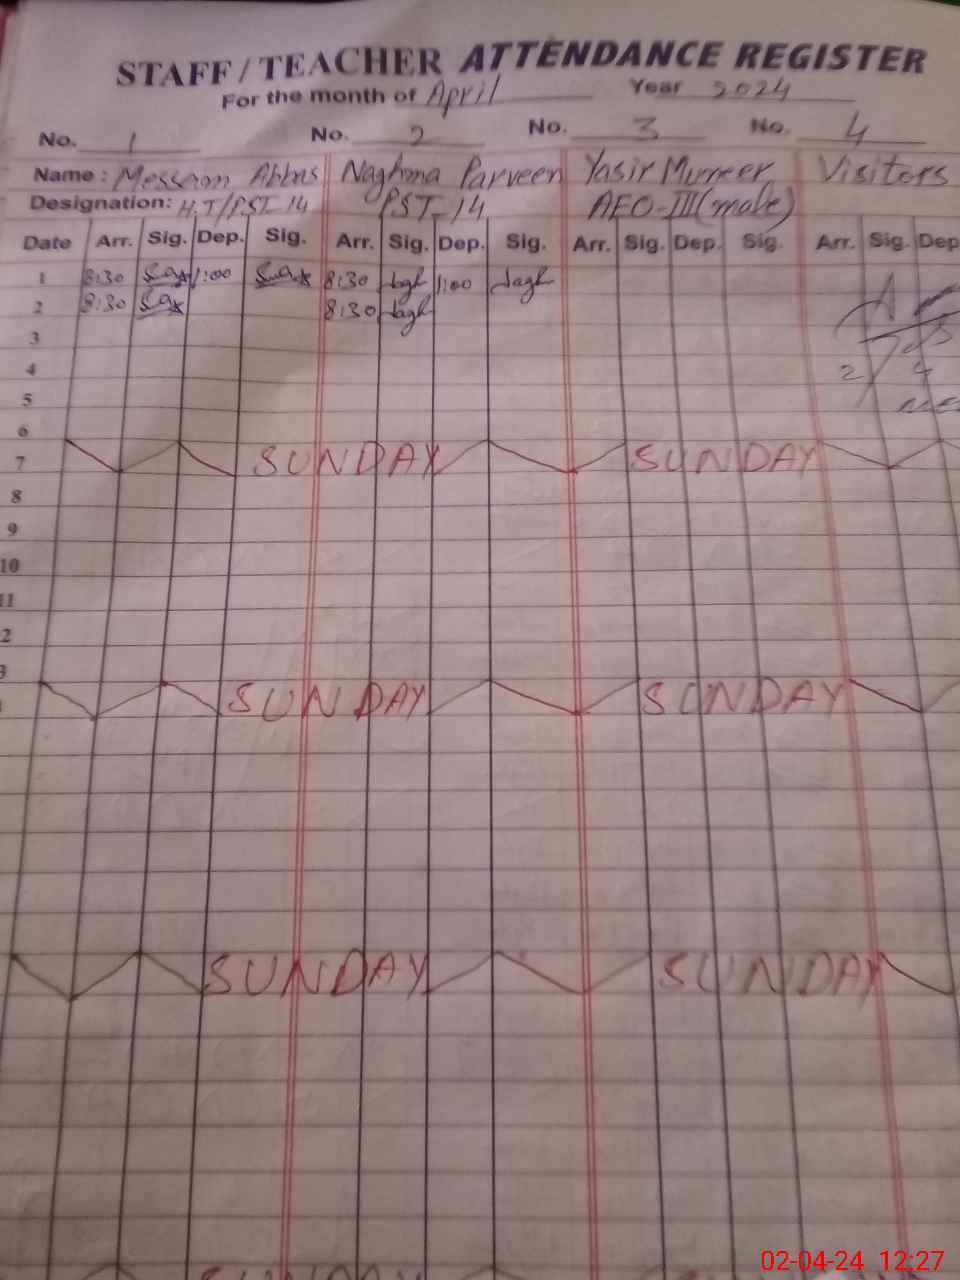 STAFF / TEACHER ATTENDANCE REGISTER
For the month of April Year 2024
No. 1 No. 2 No. 3 No. 4
Name : Abbas Naghma Parveen Yasir Muneer Visitors
Designation: H.T/PST-14 PST-14 AEO-III(male)
Date Arr. Sig. Dep. Sig. Arr. Sig. Dep. Sig. Arr. Sig. Dep. Sig. Arr. Sig. Dep
1 8:30 1:00 8:30 1:00
2 8:30 8:30
3
4 2 4
5
6
7 SUNDAY SUNDAY
8
9
10
11
2
3
SUNDAY SUNDAY
SUNDAY SUNDAY
SUNDAY
02-04-24 12:27